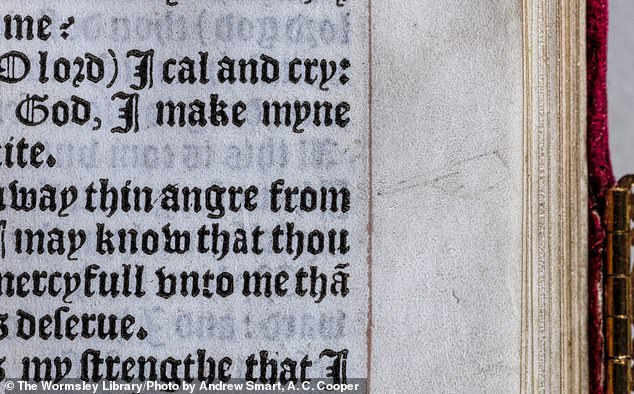 me :
O lord) I cal and cry:
God, I make myne
cite.
away thin angre from
I may know that thou
mercyfull vnto me thā
s deserue.
s my strengthe that I
© The Wormsley Library/Photo by Andrew Smart, A.C.Cooper